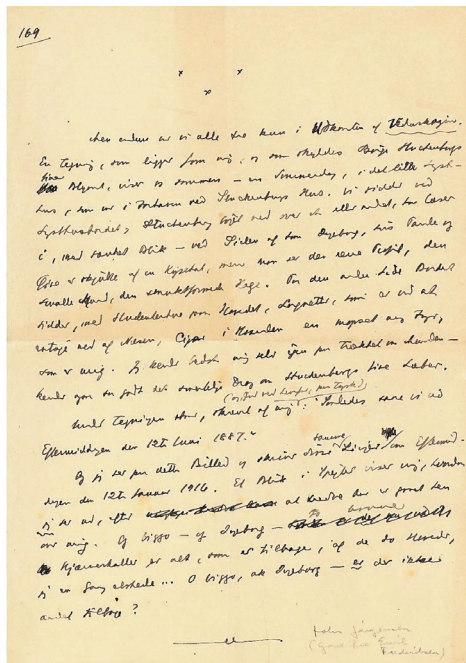 169
x x
x
Men endnu er vi alle tre kun i Udkanten af Vedurskogen.
En Tegning, som ligger foran mig, og som skyldes Børge Stuckenbergs
fine Blyant, viser os sammen – en Sommerdag, i det lille Lyst-
hus, som var i Forhaven ved Stuckenbergs Hus. Vi sidder ved
Lysthusbordet, Stuckenberg bøjet ned over et eller andet, han læser
i, med sænket Blik – ved Siden af ham Ingeborg, hvis Pande og
Øjne er skjulte af en Kysehat, men man ser den rene Profil, den
smalle Mund, den smukt formede Hage. Paa den anden Side Bordet
sidder, med Studenterhue paa Hovedet, Lorgnetten, som er ved at
ned af Næsen, Cigar i Haanden en mager ung Fyr,
som er mig. Jeg kender bedst mig selv igen paa Trækket om Munden –
kender igen saa godt det Drag om Stuckenbergs fine Læber.
Under Tegningen staar, skrevet af mig: "Saaledes sade vi ved
Eftermiddagen den 12te Juni 1887."
Og jeg ser paa dette Billed og skriver disse Linjer om Eftermid-
dagen den 12te Januar 1916. Et Blik i Spejlet viser mig, hvordan
jeg ser ud, efter al den der er gaaet hen
over mig. Og Viggo – og Ingeborg –
er alt, som er tilbage, af de to Hoveder,
jeg en Gang elskede... O Viggo, ak Ingeborg – er der ikke
andet tilbage?
Johs Jørgensen
(Gave fra Emil
Frederiksen)